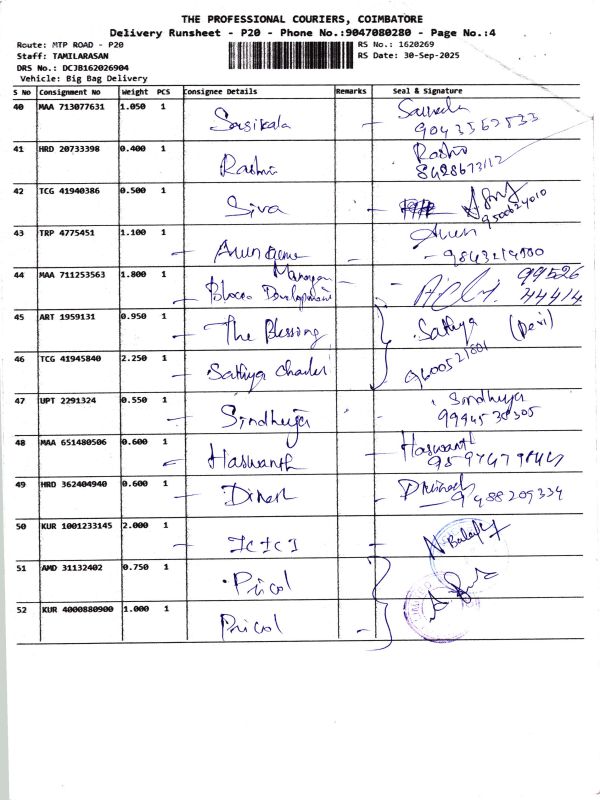 THE PROFESSIONAL COURIERS, COIMBATORE
Delivery Runsheet - P20 - Phone No.:9047080280 - Page No.:4
Route: MTP ROAD - P20
RS No.: 1620269
Staff: TAMILARASAN
RS Date: 30-Sep-2025
DRS No.: DCJB162026904
Vehicle: Big Bag Delivery
S No Consignment No Weight PCS Consignee Details Remarks Seal & Signature
40 MAA 713077631 1.050 1 Sasikala
41 HRD 20733398 0.400 1 Rashmi
42 TCG 41940386 0.500 1 Siva
9500624010
43 TRP 4775451 1.100 1 Arun
44 MAA 711253563 1.800 1 Development 99526
44414
45 ART 1959131 0.950 1 The Blessing Sathya (Devi)
46 TCG 41945840 2.250 1 Sathya 9600521801
47 UPT 2291324 0.550 1 Sindhuja Sindhuja
9994538305
48 MAA 651480506 0.600 1 Haswanth Haswanth
49 HRD 362404940 0.600 1 Dinesh 9488209334
50 KUR 1001233145 2.000 1 ICICI
51 AMD 31132402 0.750 1 Pricol
52 KUR 4000880900 1.000 1 Pricol